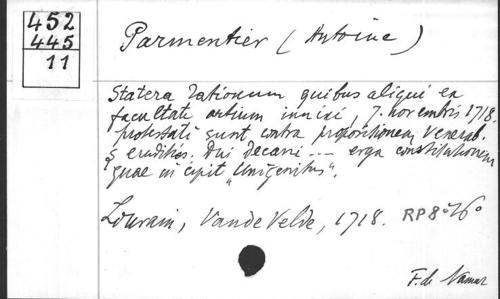 452
445
11
Parmentier (Antoine)
Statera rationum quibus aliqui ex
facultate artium innixi, 7. novembris 1718.
protestati sunt contra propositionem Venerab.
& eruditiss. Dni decani --- erga constitutionem
quae incipit "Unigenitus".
Louvain, Vande Velde, 1718. RP 8° 76°
F. de Namur